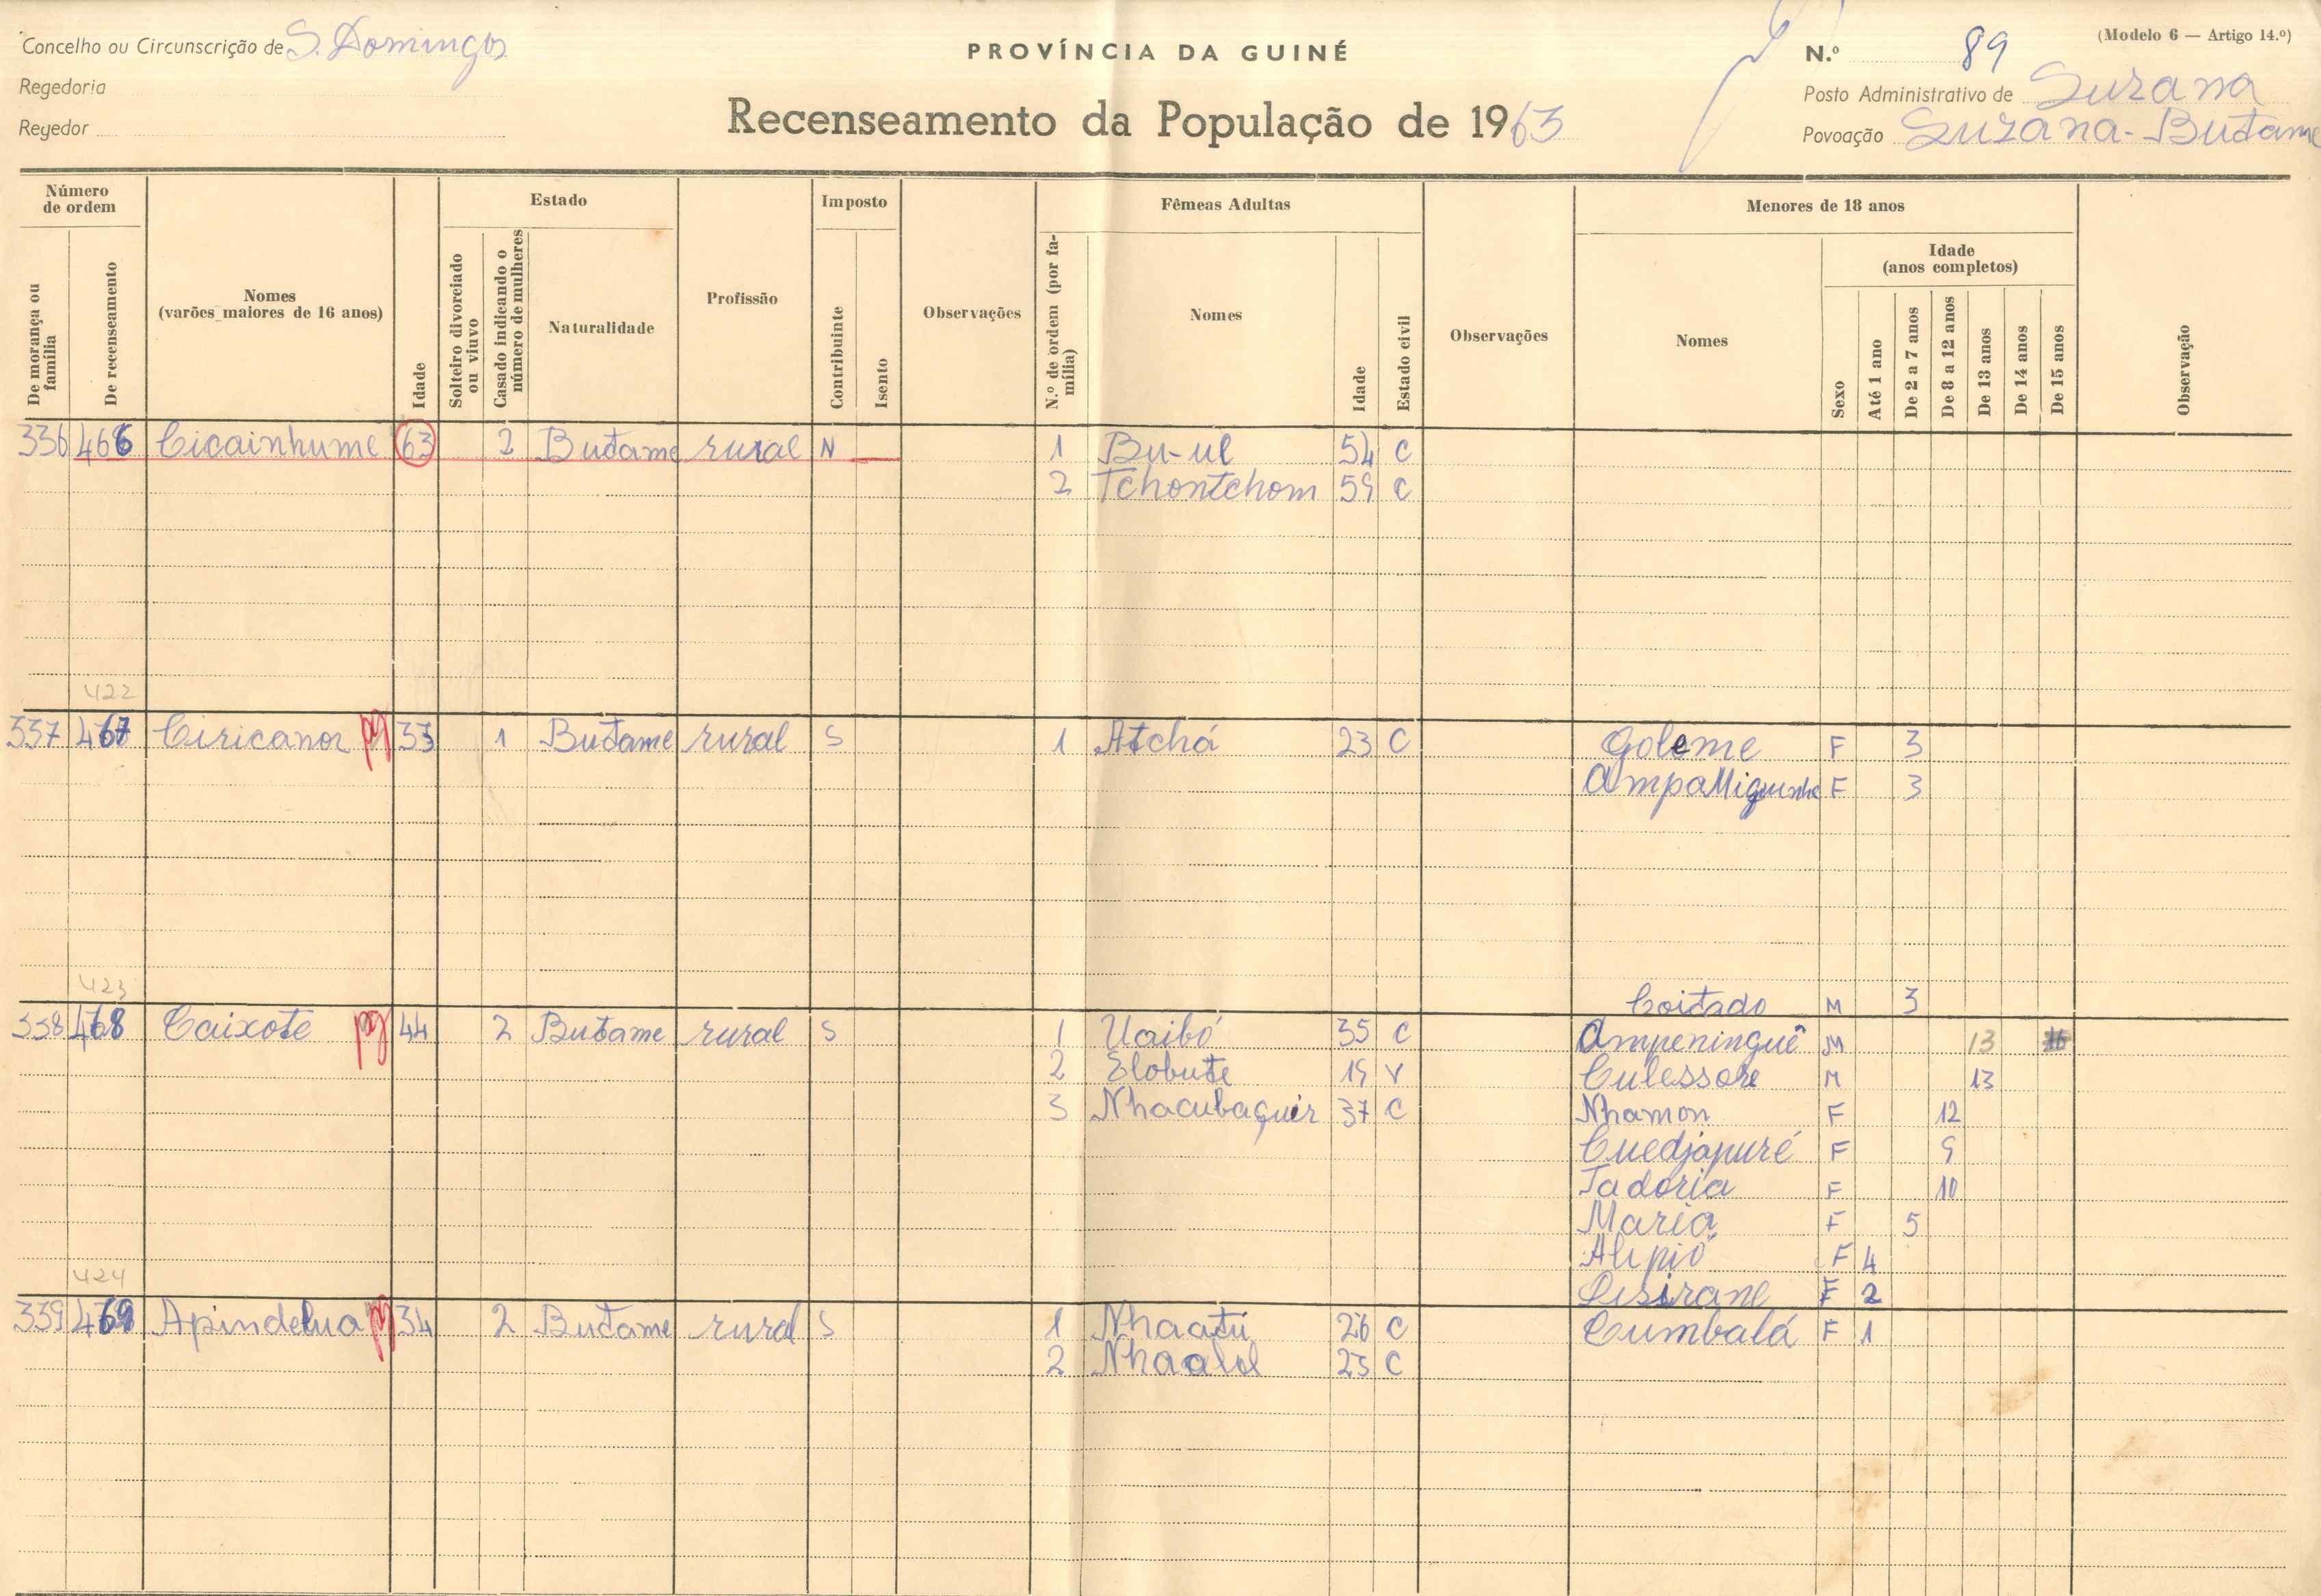 Concelho ou Circunscrição de S. Domingos
Regedoria
Regedor
PROVÍNCIA DA GUINÉ
Recenseamento da População de 1963
(Modelo 6 — Artigo 14.º)
N.º 89
Posto Administrativo de Suzana
Povoação Suzana-Butame
Número de ordem
De morança ou família
De recenseamento
Nomes
(varões maiores de 16 anos)
Idade
Estado
Solteiro divorciado ou viuvo
Casado indicando o número de mulheres
Naturalidade
Profissão
Imposto
Contribuinte
Isento
Observações
Fêmeas Adultas
N.º de ordem (por família)
Nomes
Idade
Estado civil
Observações
Menores de 18 anos
Nomes
Sexo
Idade
(anos completos)
Até 1 ano
De 2 a 7 anos
De 8 a 12 anos
De 13 anos
De 14 anos
De 15 anos
Observação
336 466 Cicainhume 63 2 Butame rural N 1 Bu-ul 54 C
2 Tchontchom 59 C
422
337 467 Ciricanor pg 33 1 Butame rural S 1 Atchá 23 C Goleme F 3
F 3
423
Coitado M 3
338 468 Caixote pg 44 2 Butame rural S 1 Uaibó 35 C Ampeninguê M 13
2 Elobute 19 V Culessore M 13
3 Nhacubaquir 37 C Nhamon F 12
Cuedjapuré F 9
Tadoria F 10
Maria F 5
Alipió F 4
424
F 2
339 469 Apindelua pg 34 2 Butame rural S 1 Nhaatú 26 C Cumbalá F 1
2 Nhaalol 25 C